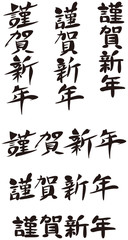 謹賀新年
謹賀新年
謹賀新年
謹賀新年
謹賀新年
謹賀新年